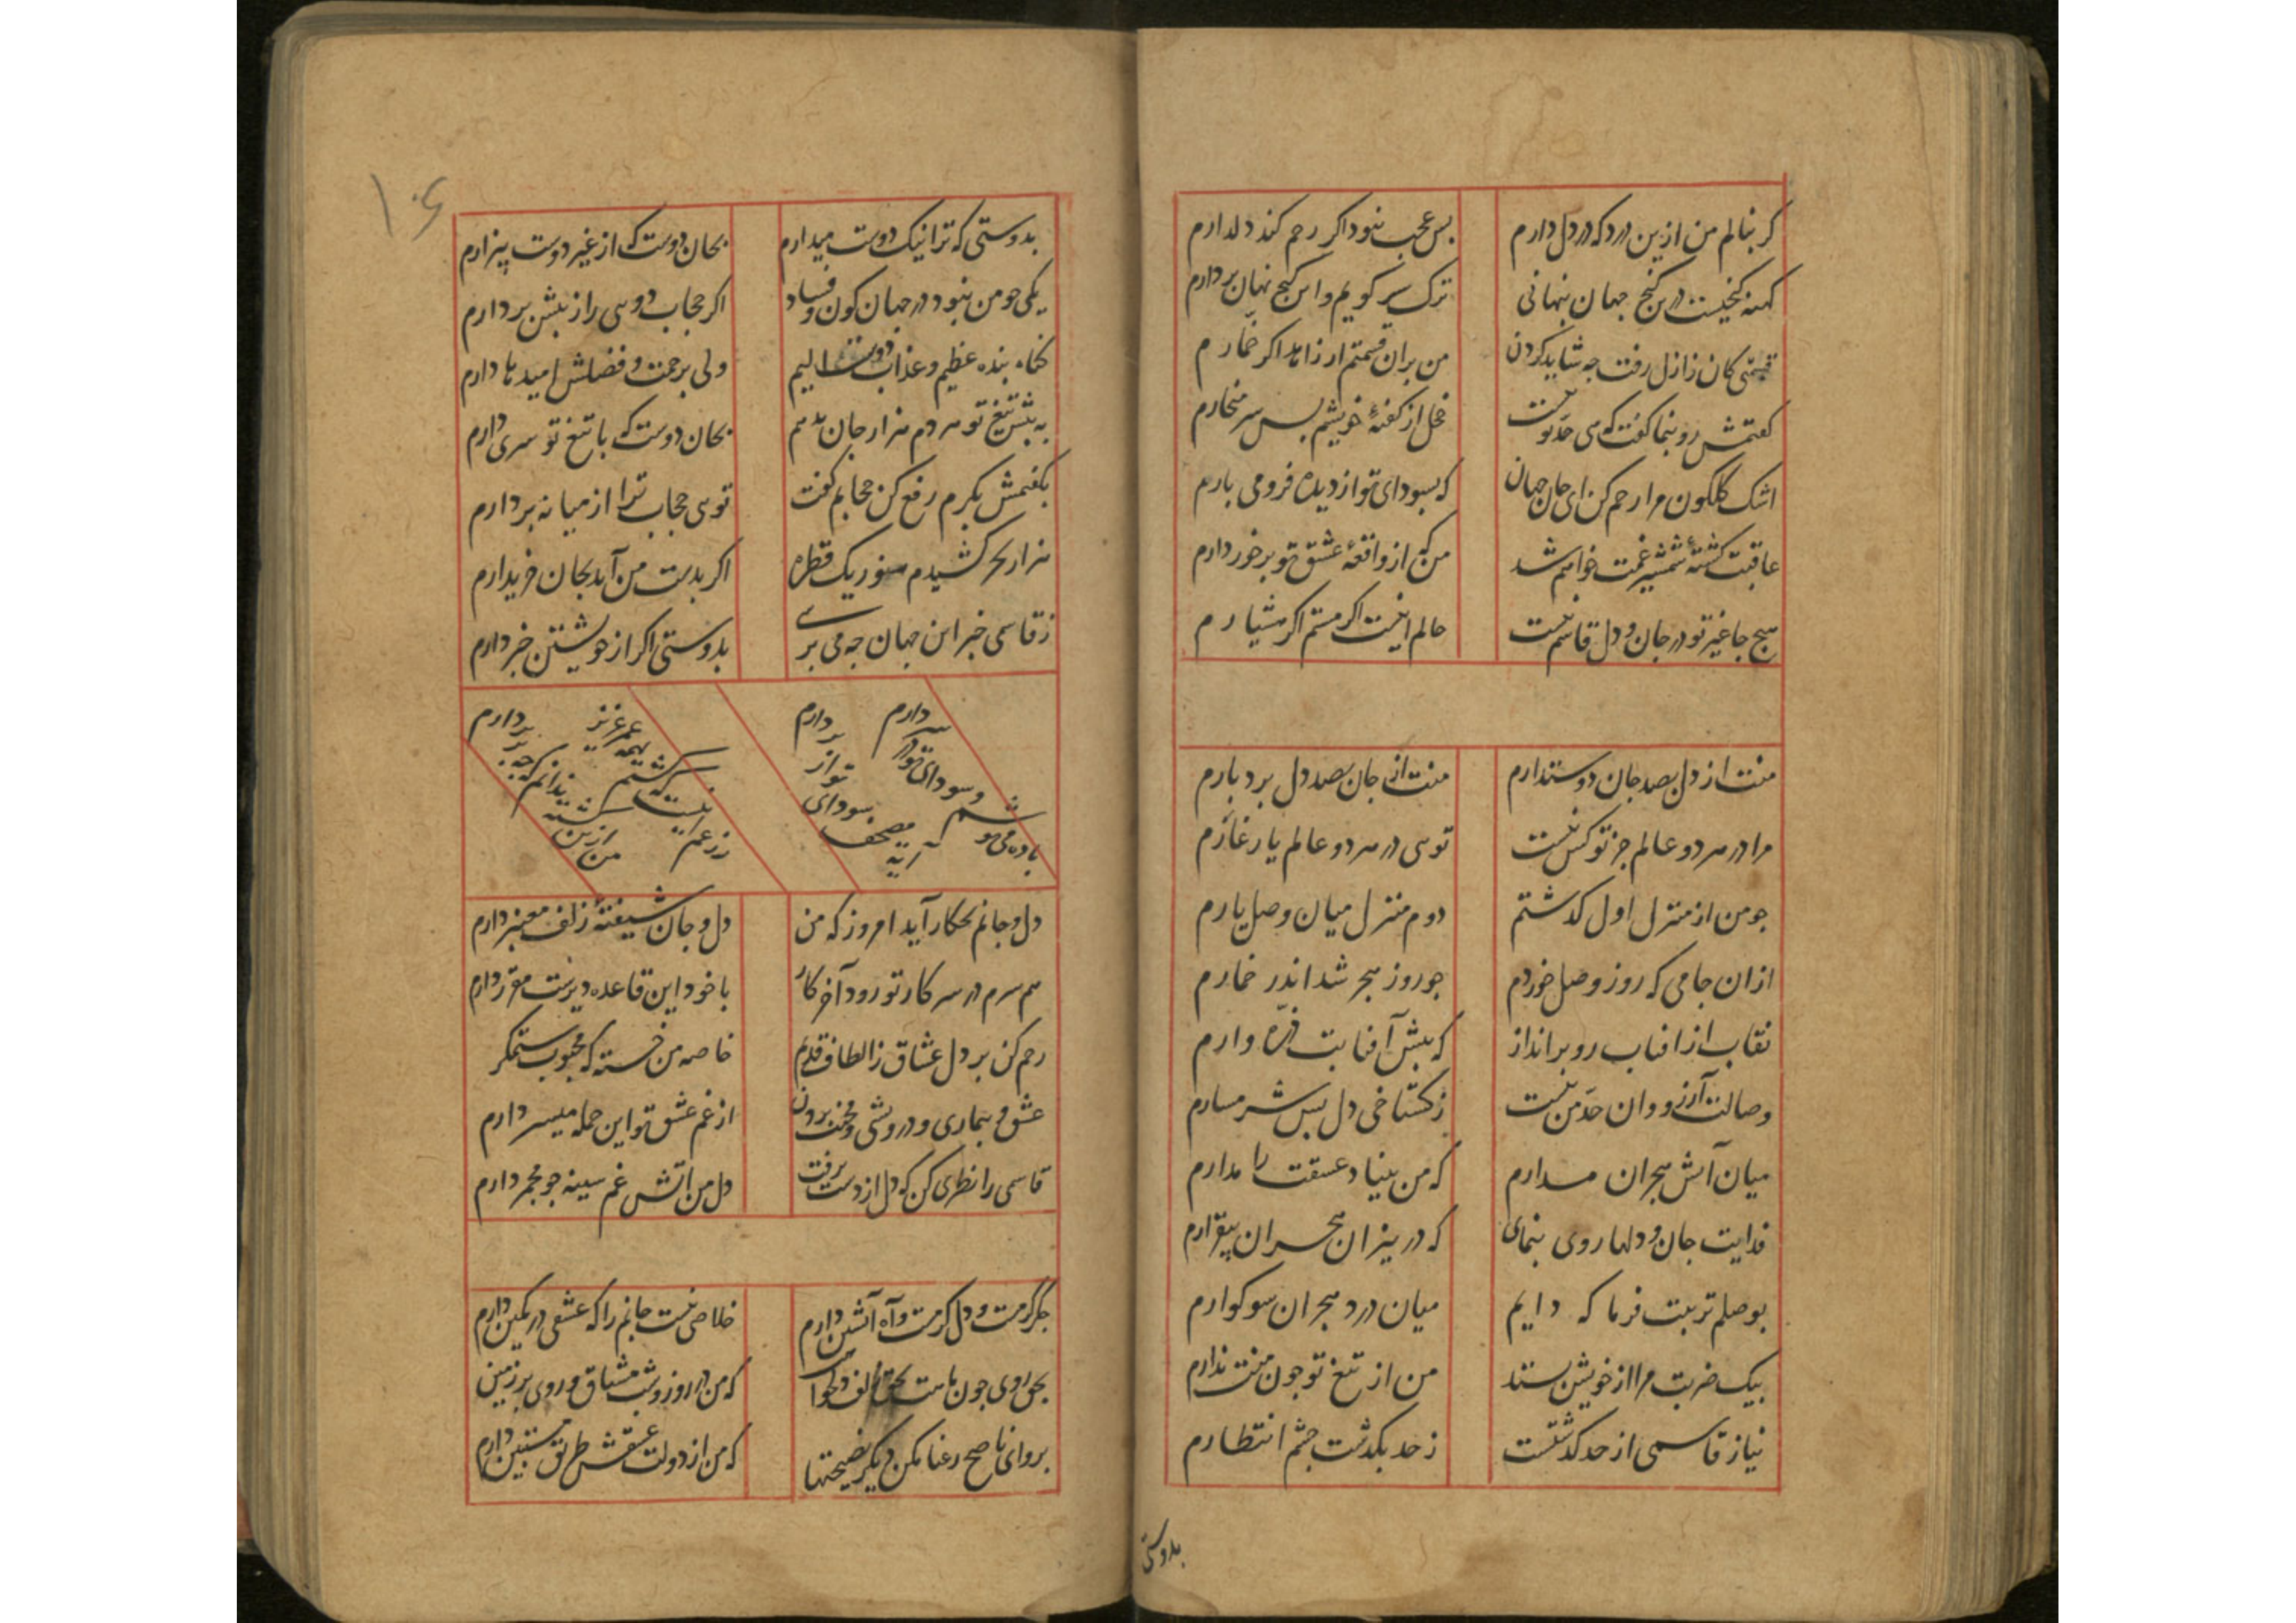 کر بنالم من ازین درد که در دل دارم بس عجب نبود اکر رحم کند دلدارم
کهنه کنجیست درین کنج جهان پنهانی ترک سر کویم و این کنج نهان بردارم
قسمتی کان ز ازل رفت چه شاید کردن من بران قسمتم ار زاهد اکر خمارم
کفتمش رو بنما کفت که این حد تو نیست خجل از کفتهٔ خویشم بس سر میخارم
اشک کلکون مرا رحم کن ای جان جهان که بسودای تو از دیده فرو می بارم
عاقبت کشتهٔ شمشیر غمت خواهم شد من که از واقعهٔ عشق تو برخوردارم
هیچ جا غیر تو در جان و دل قاسم نیست حالم اینست اکر مستم اکر هشیارم
منت از دل بصد جان دوستدارم منت از جان بصد دل بردبارم
مرا در هر دو عالم جز تو کس نیست تویی در هر دو عالم یار غارم
چو من از منزل اول کذشتم دوم منزل میان وصل یارم
ازان جامی که روز وصل خوردم چو روز هجر شد اندر خمارم
نقاب از افتاب رو برانداز که پیش آفتابت ذره وارم
وصالت آرزو وان حد من نیست ز کستاخی دل بس شرمسارم
میان آتش هجران مدارم که من بنیاد عشقت را مدارم
فدایت جان و دلها روی بنمای که در نیران هجران بیقرارم
بوصلم تربیت فرما که دایم میان درد هجران سوکوارم
بیک ضربت مرا از خویش بستد من از تیغ تو چون منت ندارم
نیاز قاسمی از حد کذشتست ز حد بکذشت چشم انتظارم
بدوستی
۱۰۶
بدوستی که ترا نیک دوست میدارم بجان دوست که از غیر دوست بیزارم
یکی چو من نبود در جهان کون و فساد اکر حجاب دویی را ز پیش بردارم
کناه بنده عظیم و عذاب دوست الیم ولی برحمت و فضلش امیدها دارم
به پیش تیغ تو هر دم هزار جان بدهم بجان دوست که با تیغ تو سری دارم
بکفتمش بکرم رفع کن حجابم کفت تویی حجاب ترا از میانه بردارم
هزار بحر کشیدم هنوز یک قطره اکر بدست من آید بجان خریدارم
ز قاسمی خبر این جهان چه می پرسی بدوستی اکر از خویشتن خبر دارم
باده می نوشم و سودای تو در سر دارم
آیه مصحف سودای تو از بر دارم
زر عمریست که کشتم همه عمر عزیز
من ازین کشته ندانم که چه بر بردارم
دل و جانم بچکار آید امروز که من دل و جان شیفتهٔ زلف معنبر دارم
هم سرم در سر کار تو رود آخر کار با خود این قاعده دیرست مقرر دارم
رحم کن بر دل عشاق ز الطاف قدیم خاصه من خسته که محبوب ستمکر دارم
عشق و بیماری و درویشی و محنت بردن از غم عشق تو این جمله میسر دارم
قاسمی را نظری کن که دل از دست برفت دل من آتش غم سینه چو مجمر دارم
جکر کرمست و دل کرمست و آه آتشین دارم خلاصی نیست جانم را که عشقی در کمین دارم
بحق روی چون ماهت بحق زلف دلخواهت که من در روز و شب مشتاق و روی بر زمین دارم
برو ای ناصح رعنا مکن دیکر نصیحتها که من از دولت عشقش طریق مستبین دارم